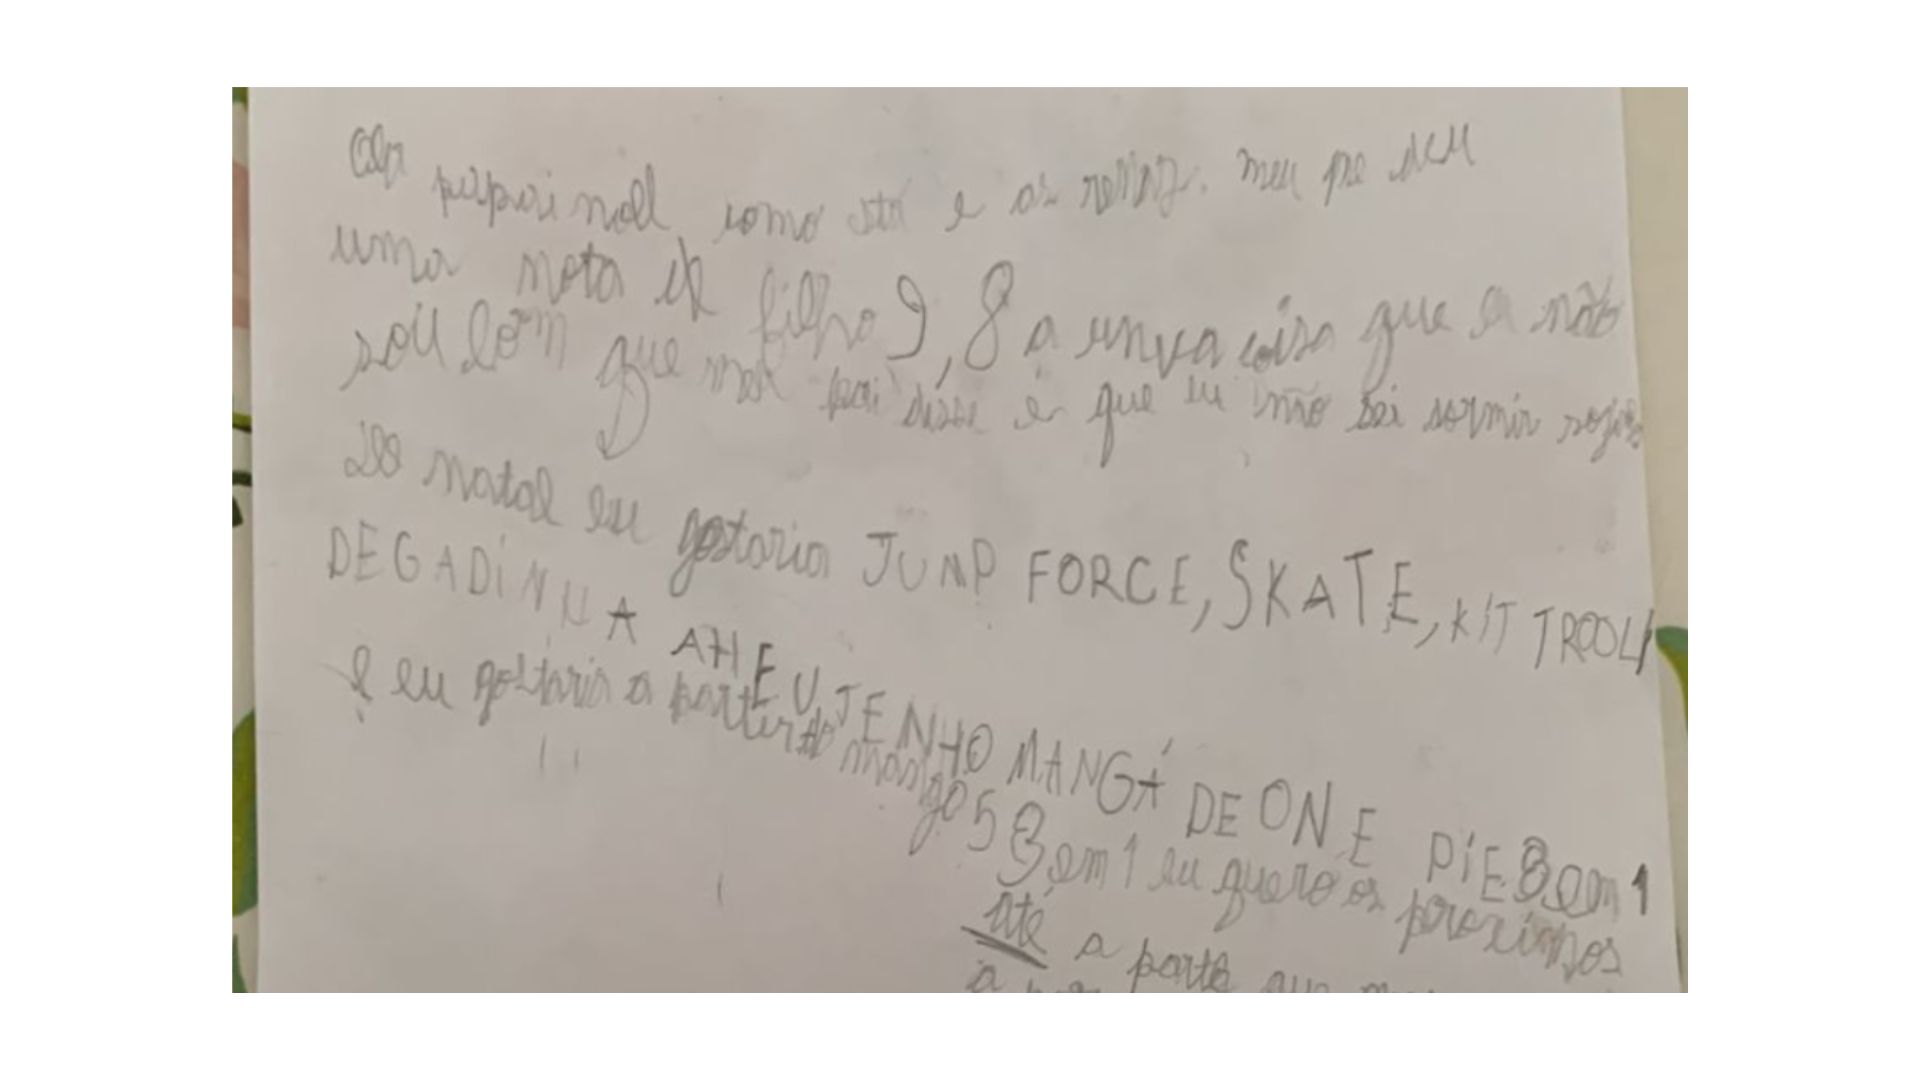 Ola papai noel como sta e as renas. meu pai deu
uma nota de filho 9,8 a unva coisa que eu não
sou bom que meu pai disse é que eu não sei dormir
De natal eu gostaria JUMP FORCE, SKATE, KIT TROOLL
DEGADINHA AH EU TENHO MANGÁ DE ONE PIE 3 em 1
e eu gostaria a partir do manga 5 3 em 1 eu quero os proximos
até a parte que
a